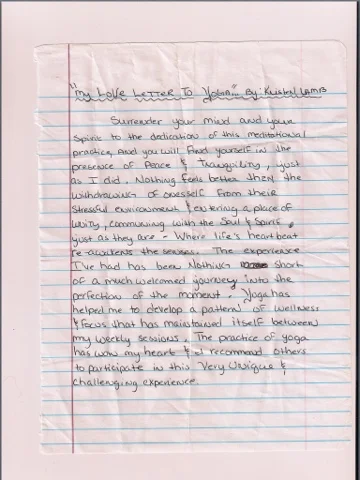 "My Love Letter To Yoga" By: Kristen Lamb
Surrender your mind and your
Spirit to the dedication of this meditational
practice, And you will find yourself in the
presence of Peace & Tranquility, just
as I did. Nothing feels better then the
withdrawing of onesself from their
Stressful environment & entering a place of
Unity, communing with the Soul & Spirit
just as they are - Where life's heartbeat
re-awakens the senses. The experience
I've had has been Nothing short
of a much welcomed journey into the
perfection of the moment. Yoga has
helped me to develop a pattern of wellness
& focus that has maintained itself between
my weekly sessions. The practice of yoga
has won my heart & I recommend others
to participate in this Very Unique &
challenging experience.